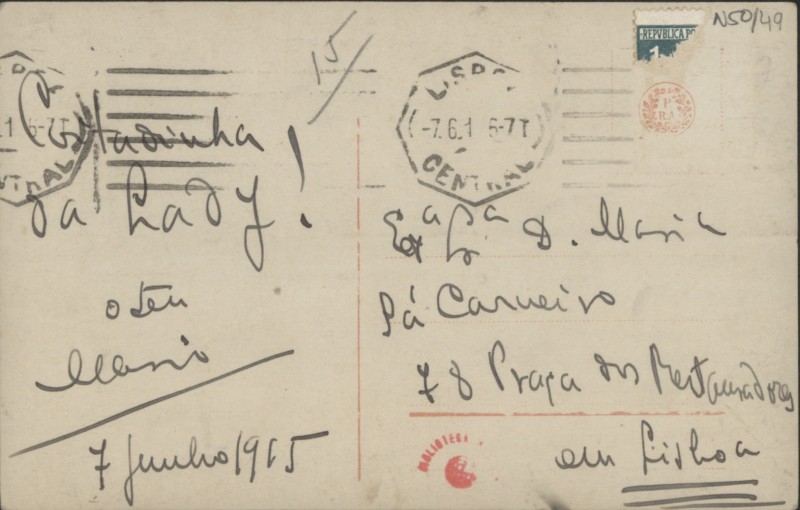 15
N50/49
REPVBLICA PO
1
LISBO
-7.6.1 6-7T
CENTRAL
Coitadinha
da Lady!
o teu
Mario
7 Junho 1915
Exª Srª D. Maria
Sá Carneiro
78 Praça dos Restauradores
em Lisboa
BIBLIOTECA